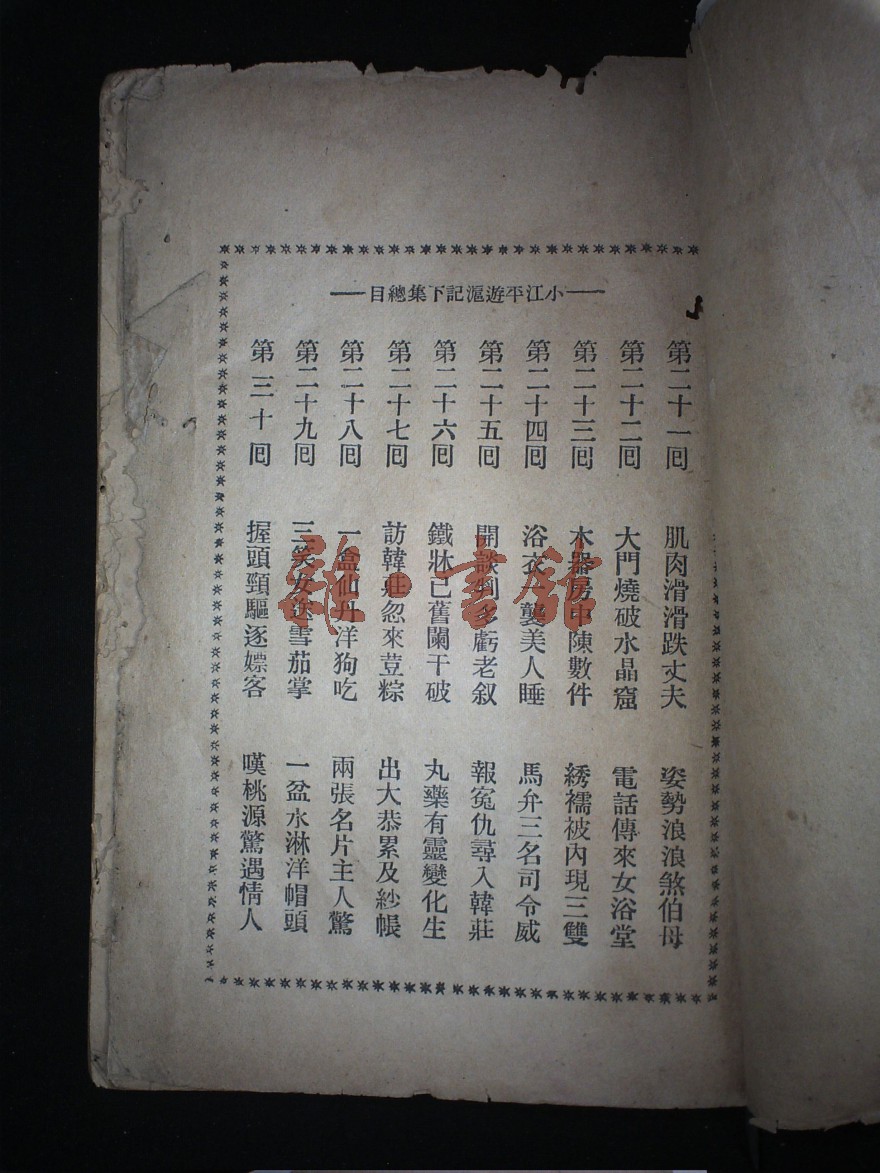 小江平遊滬記下集總目
第二十一囘 肌肉滑滑跌丈夫 姿勢浪浪煞伯母
第二十二囘 大門燒破水晶窟 電話傳來女浴堂
第二十三囘 木器房中陳數件 綉襦被內現三雙
第二十四囘 浴衣一襲美人睡 馬弁三名司令威
第二十五囘 開談判多虧老叙 報冤仇尋入韓莊
第二十六囘 鐵牀已舊闌干破 丸藥有靈變化生
第二十七囘 訪韓莊忽來荳粽 出大恭累及紗帳
第二十八囘 一盒仙丹洋狗吃 兩張名片主人驚
第二十九囘 三笑女送雪茄掌 一盆水淋洋帽頭
第三十囘 握頭頸驅逐嫖客 嘆桃源驚遇情人
雜·書舘